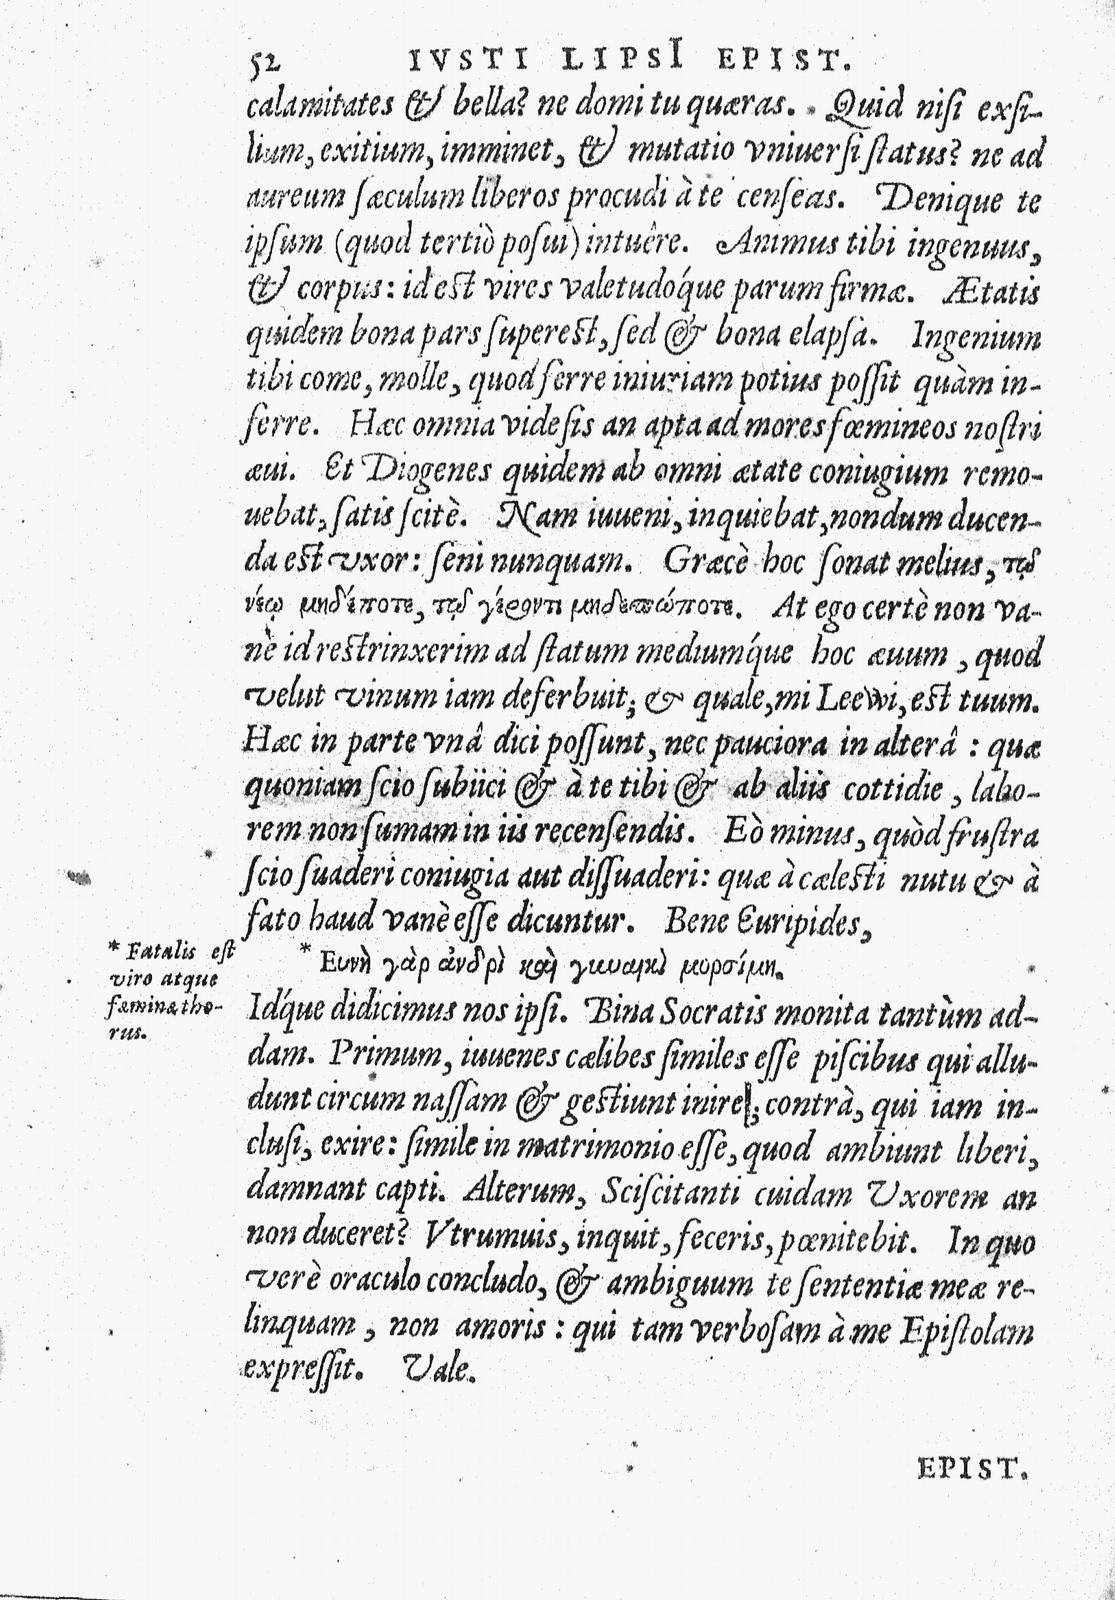 52 IVSTI LIPSI EPIST.
calamitates & bella? ne domi tu quæras. Quid nisi exsi-
lium, exitium, imminet, & mutatio vniuersi status? ne ad
aureum sæculum liberos procudi à te censeas. Denique te
ipsum (quod tertiò posui) intuêre. Animus tibi ingenuus,
& corpus: id est vires valetudóque parum firmæ. Ætatis
quidem bona pars superest, sed & bona elapsa. Ingenium
tibi come, molle, quod ferre iniuriam potius possit quàm in-
ferre. Hæc omnia vide sis an apta ad mores fœmineos nostri
æui. Et Diogenes quidem ab omni ætate coniugium remo-
uebat, satis scitè. Nam iuueni, inquiebat, nondum ducen-
da est vxor: seni nunquam. Græcè hoc sonat melius, τῷ
νέῳ μηδέποτε, τῷ γέροντι μηδεπώποτε. At ego certè non va-
nè id restrinxerim ad statum mediúmque hoc æuum, quod
velut vinum iam deferbuit; & quale, mi Leewi, est tuum.
Hæc in parte vnâ dici possunt, nec pauciora in alterâ: quæ
quoniam scio subiici & à te tibi & ab aliis cottidie, labo-
rem non sumam in iis recensendis. Eò minus, quòd frustra
scio suaderi coniugia aut dissuaderi: quæ à cælesti nutu & à
fato haud vanè esse dicuntur. Bene Euripides,
* Ευνὴ γὰρ ἀνδρὶ καὶ γυναικὶ μορσίμη.
* Fatalis est
viro atque
fæminæ tho-
rus.
Idque didicimus nos ipsi. Bina Socratis monita tantùm ad-
dam. Primum, iuuenes cælibes similes esse piscibus qui allu-
dunt circum nassam & gestiunt inire; contrà, qui iam in-
clusi, exire: simile in matrimonio esse, quod ambiunt liberi,
damnant capti. Alterum, Sciscitanti cuidam Vxorem an
non duceret? Vtrumuis, inquit, feceris, pœnitebit. In quo
verè oraculo concludo, & ambiguum te sententiæ meæ re-
linquam, non amoris: qui tam verbosam à me Epistolam
expressit. Vale.
EPIST.